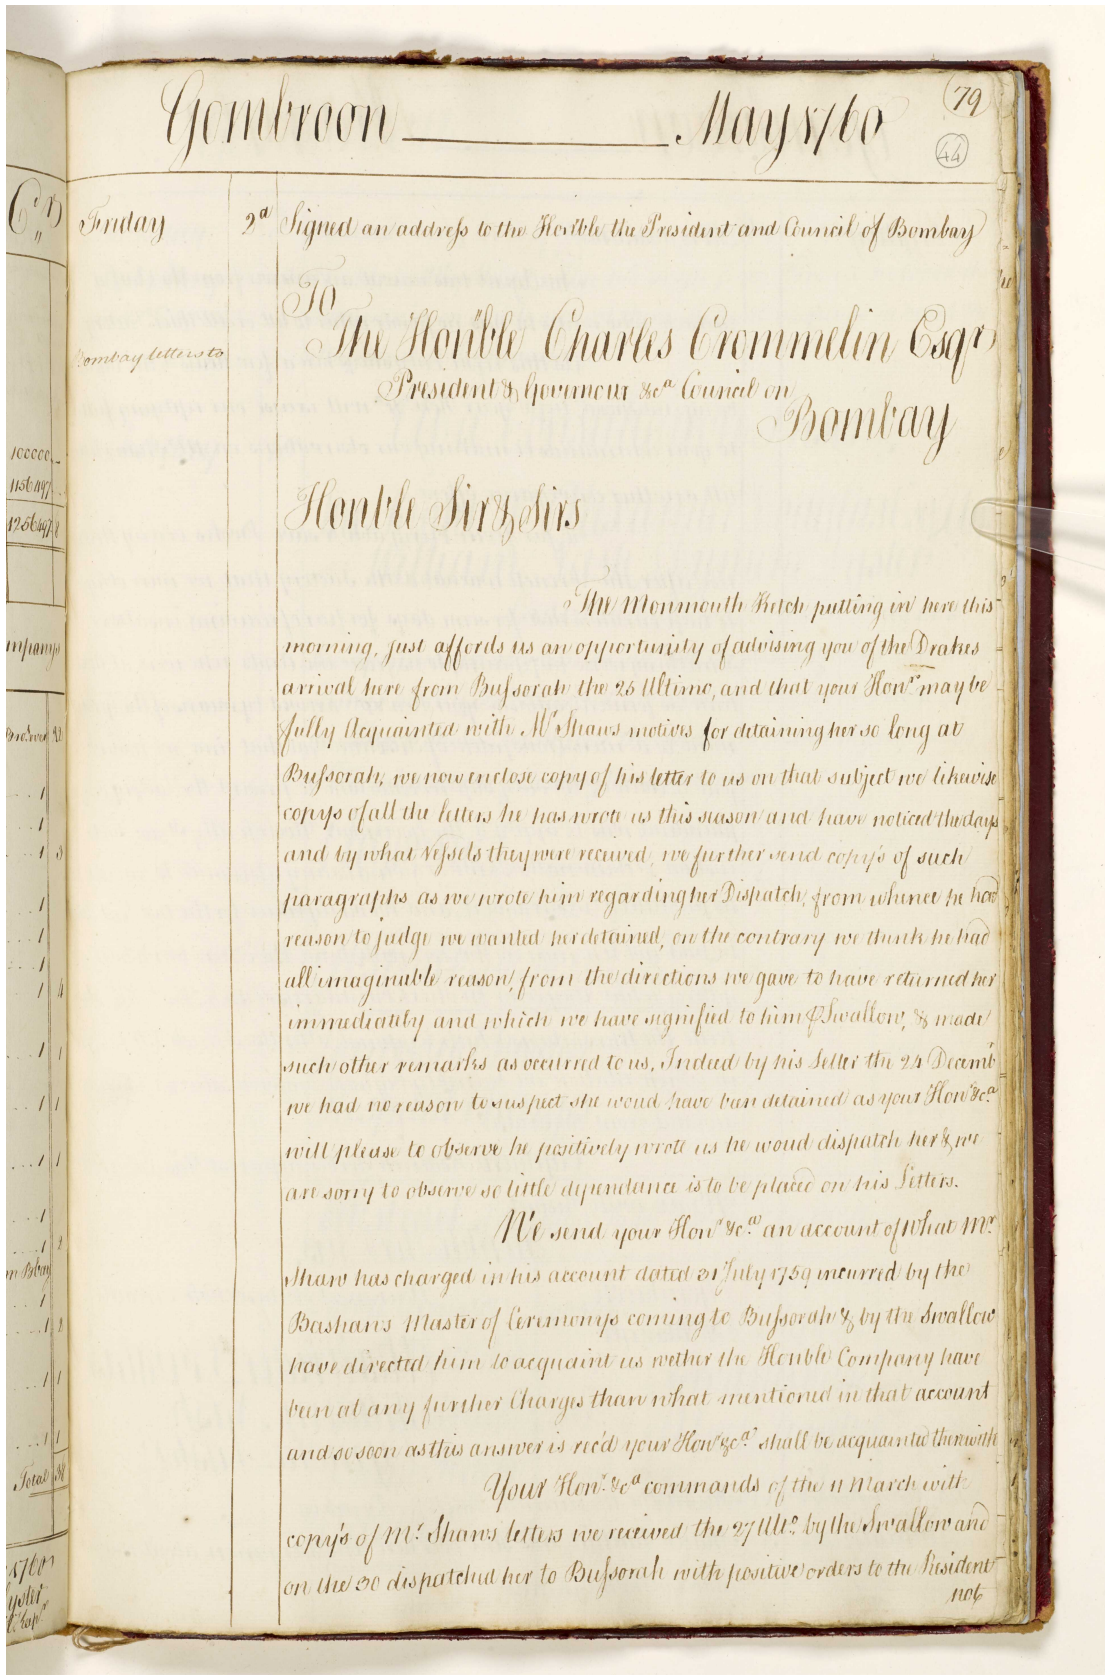 Gombroon May 1760
79
44
Friday 2d Signed an address to the Honble the President and Council of Bombay
To
Bombay letters to
The Honble Charles Crommelin Esqr
President & Governour &ca Council on
Bombay
Honble Sir & Sirs
The Monmouth Ketch putting in here this
morning, just affords us an opportunity of advising you of the Drakes
arrival here from Bussorah the 25 Ultimo, and that your Honrs may be
fully Acquainted with Mr Shaws motives for detaining her so long at
Bussorah; we now enclose copy of his letter to us on that subject we likewise
copys of all the letters he has wrote us this season and have noticed the days
and by what Vessels they were received, we further send copy's of such
paragraphs as we wrote him regarding her Dispatch, from whence he had
reason to judge we wanted her detained, on the contrary we think he had
all imaginable reason, from the directions we gave to have returned her
immediately and which we have signified to him ⅌ Swallow, & made
such other remarks as occurred to us. Indeed by his Letter the 24 Decemb
we had no reason to suspect she woud have been detained as your Honr &ca
will please to observe he positively wrote us he woud dispatch her & we
are sorry to observe so little dependance is to be placed on his Letters.
We send your Honr &ca an account of what Mr
Shaw has charged in his account dated 31 July 1759 incurred by the
Bashaws Master of Ceremonys coming to Bussorah & by the Swallow
have directed him to acquaint us wether the Honble Company have
been at any further Charges than what mentioned in that account
and so soon as this answer is rec'd your Honr &ca shall be acquainted therewith
Your Honr &ca commands of the 11 March with
copy's of Mr Shaws letters we received the 27 Ulto by the Swallow and
on the 30 dispatched her to Bussorah with positive orders to the Resident
not
100000
1156497
1256497 8
Total 38
1760